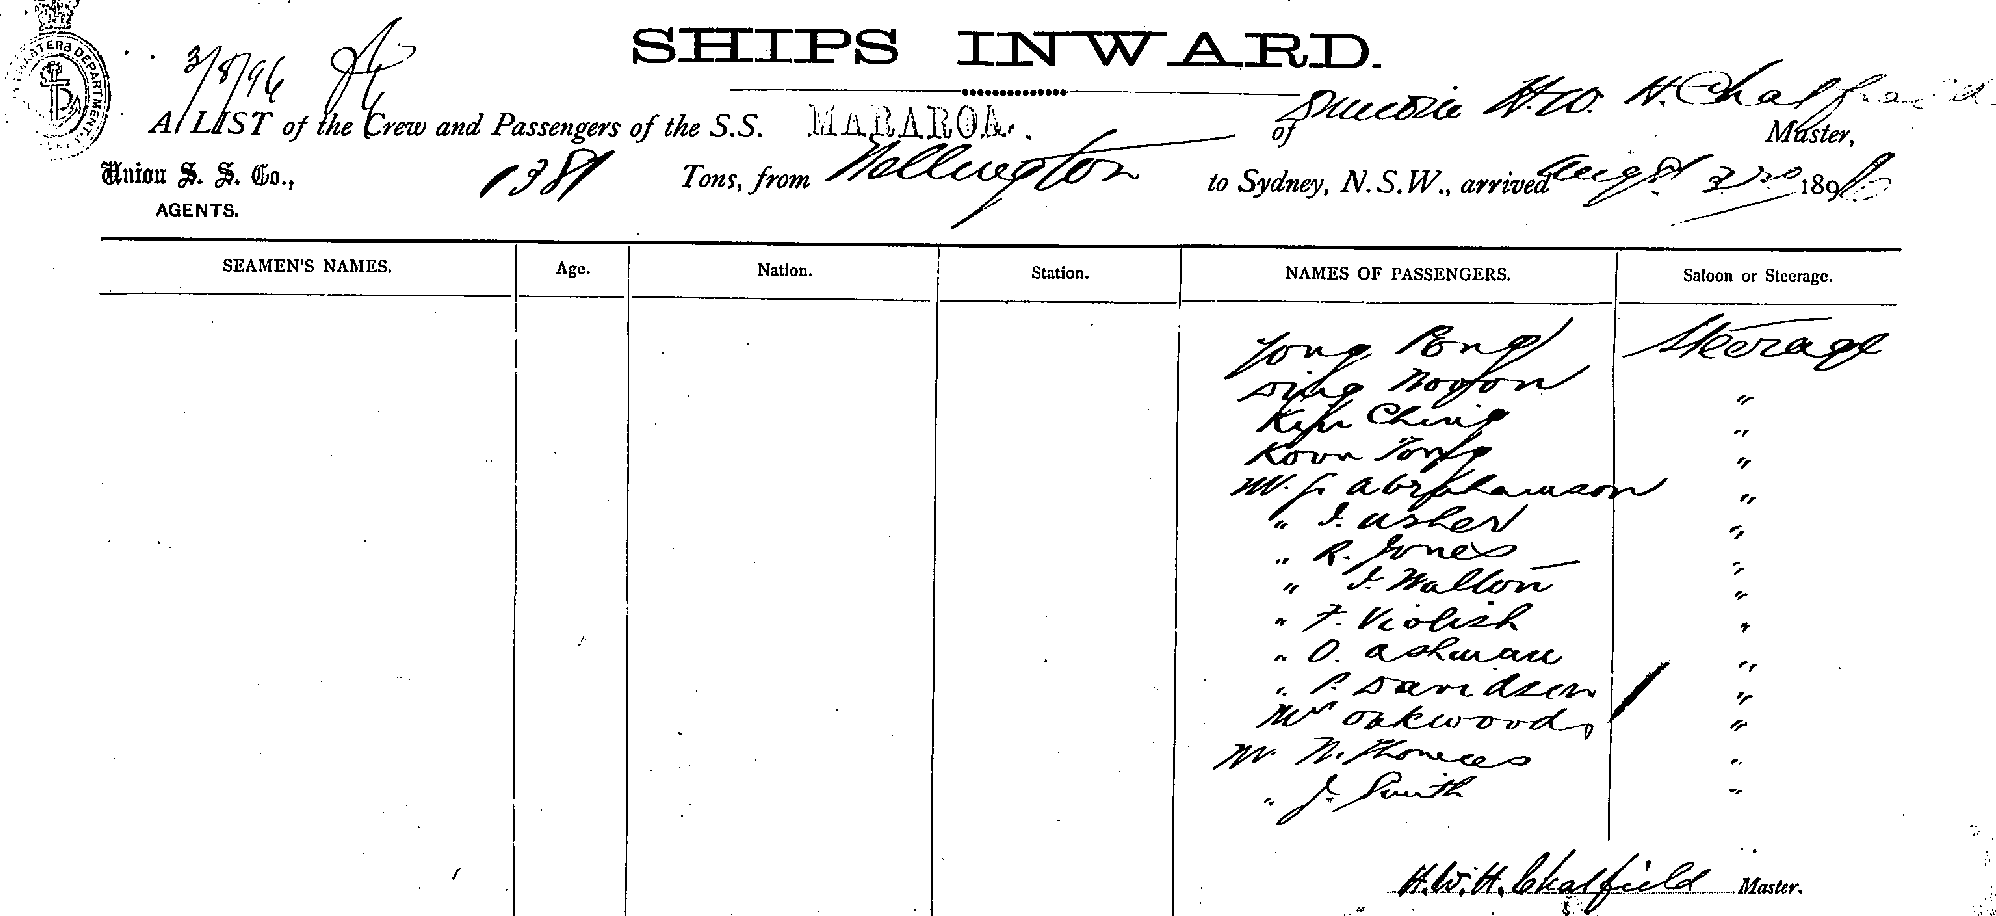 SHIPS INWARD.
3/8/96
A LIST of the Crew and Passengers of the S.S. MARAROA. of Dunedin H.W. H. Chatfield Master,
Union S. S. Co., AGENTS. 1381 Tons, from Wellington to Sydney, N.S.W., arrived Augst 3rd 1896
SEAMEN'S NAMES. Age. Nation. Station. NAMES OF PASSENGERS. Saloon or Steerage.
Yong Pong Steerage
Ding "
Ching "
Kovn Tong "
Mr. J. Abrahamson "
" I. Asher "
" R. Jones "
" J. Walton "
" F. Violish "
" O. Ashman "
" P. Davidson "
Mrs Oakwoods "
Mr N. Thomas "
" J. Smith "
H.W.H. Chatfield Master.